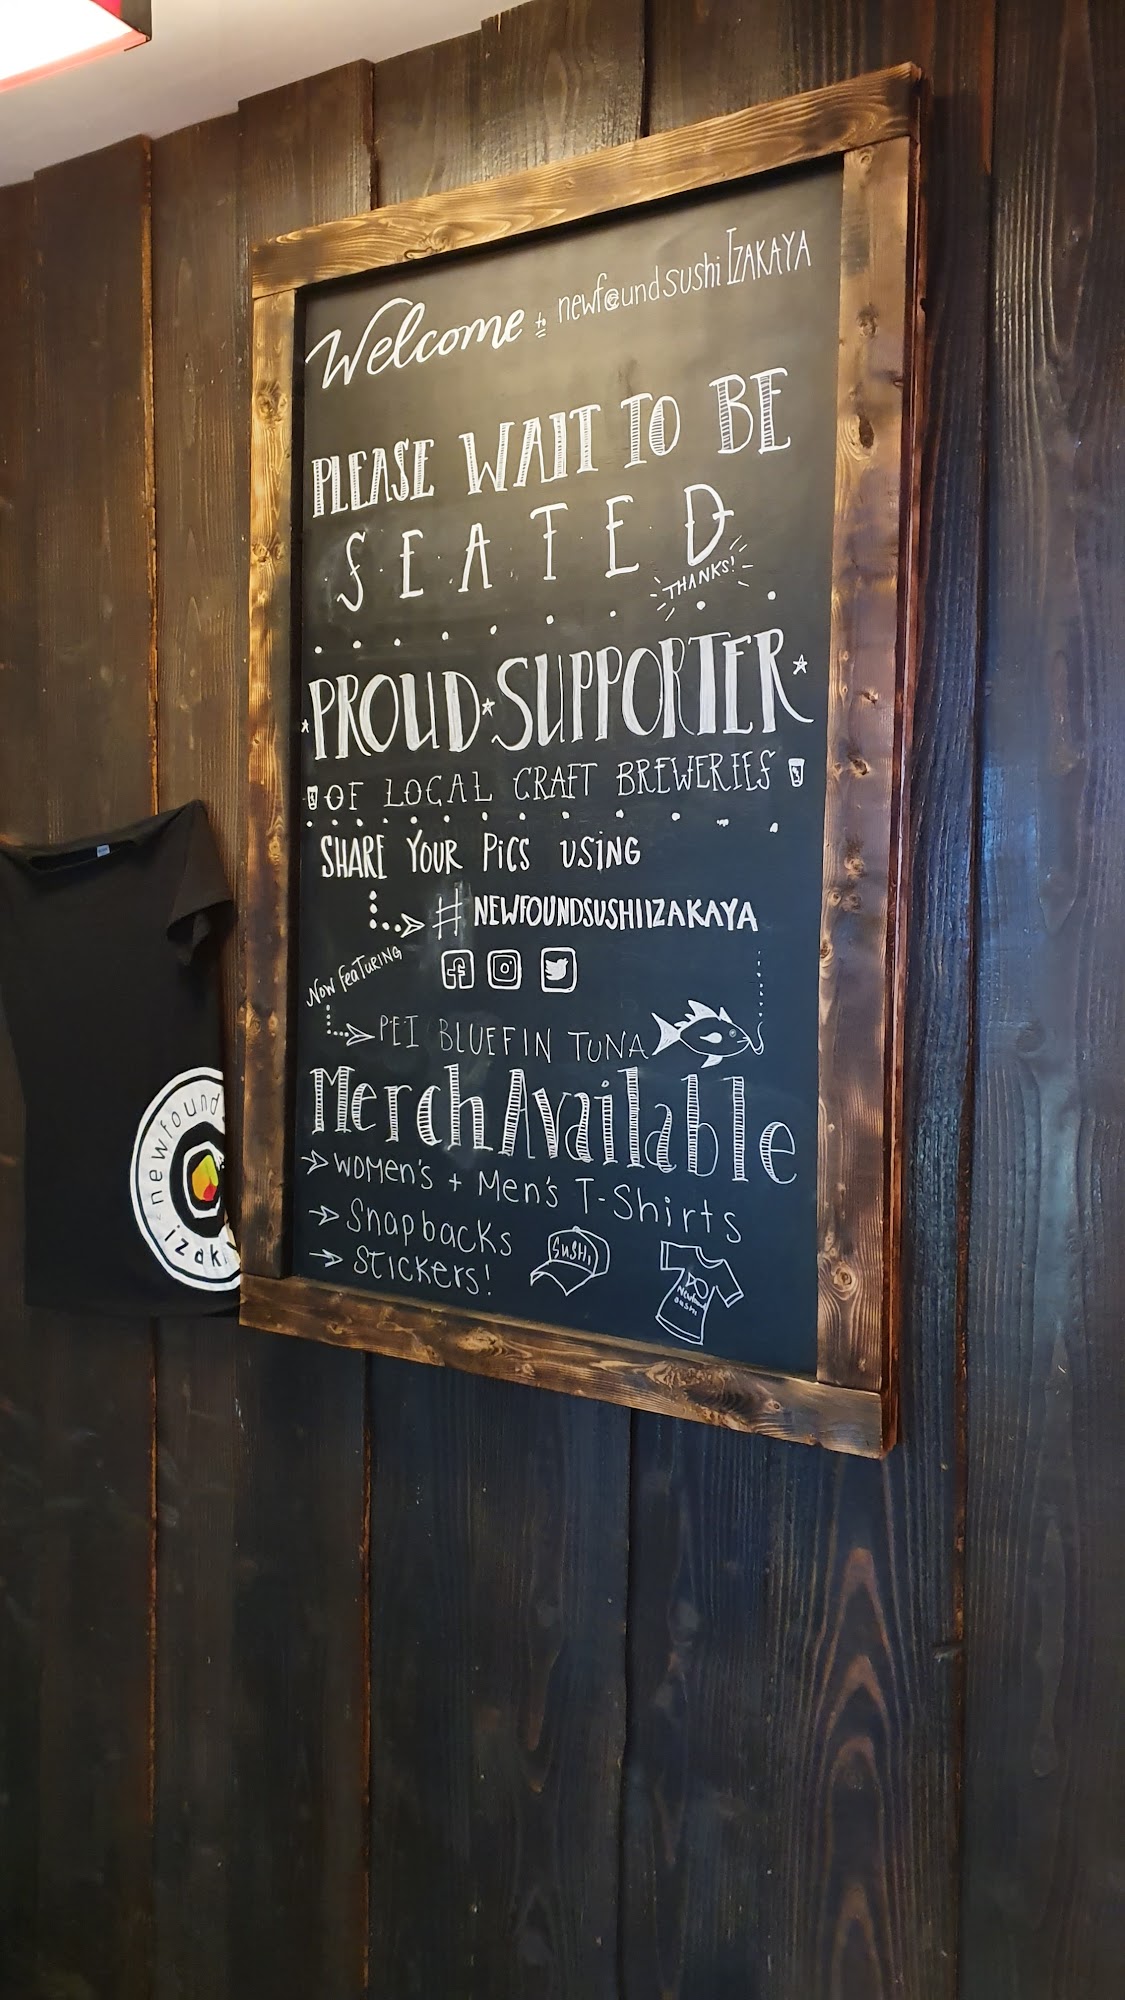 Welcome to newfound sushi IZAKAYA
PLEASE WAIT TO BE
SEATED
THANKS!
PROUD SUPPORTER
OF LOCAL CRAFT BREWERIES
SHARE YOUR PiCS USiNG
#NEWFOUNDSUSHIIZAKAYA
Now FeaTURING
PEI BLUEFIN TUNA
Merch Available
WOMen's + Men's T-Shirts
Snapbacks
STickers!
SuSHi
newfound
izak